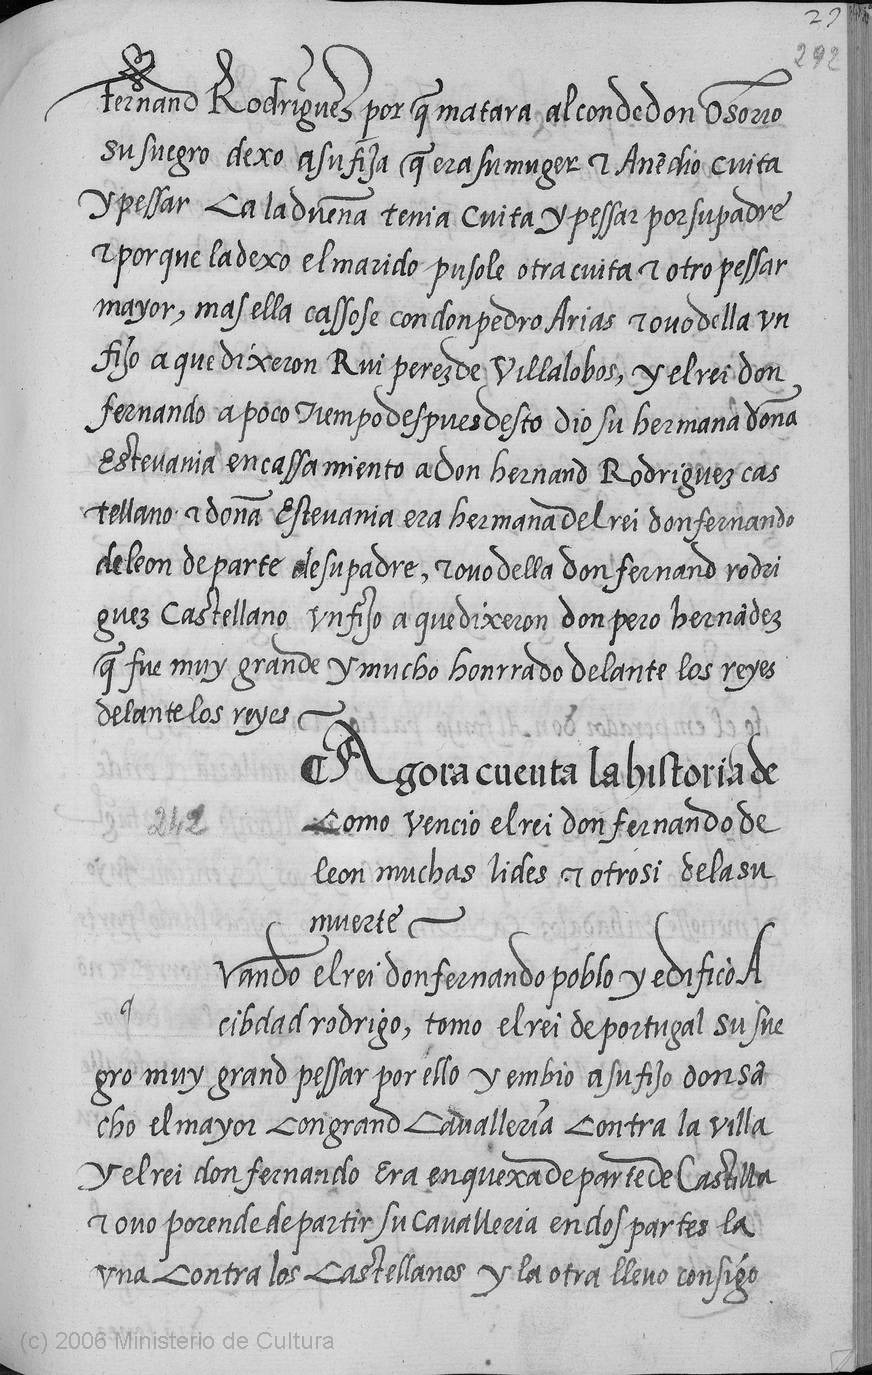 29
292
fernand Rodriguez por q̃ matara, al conde don Osorio
su suegro dexo a su fija q̃ era su muger τ Anẽdio cuita
y pessar Ca la dueña tenia cuita y pessar por su padre
τ porque la dexo el marido pusole otra cuita τ otro pessar
mayor, mas ella cassose con don pedro Arias τ ovo della vn
fijo a que dixeron Rui perez de Villalobos, y el rei don
fernando a poco Tiempo despues desto dio su hermana doña
Estevania en cassamiento a don hernand Rodriguez cas
tellano τ doña Estevania era hermana del rei don fernando
de leon de parte de su padre, τ ovo della don fernand rodri
guez Castellano vn fijo a que dixeron don pero hernãdez
q̃ fue muy grande y mucho honrrado delante los reyes
delante los reyes
Agora cuenta la historia de
242
Como vencio el rei don fernando de
leon muchas lides τ otrosi de la su
muerte
vando el rei don fernando poblo y edificò A
q
cibdad rodrigo, tomo el rei de portugal su sue
gro muy grand pessar por ello y embio a su fijo don sã
cho el mayor Con grand Cavalleria Contra la villa
y el rei don fernando Era en quexa de parte de Castilla
τ ovo por ende departir su Cavalleria en dos partes la
vna Contra los Castellanos y la otra llevo consigo
(c) 2006 Ministerio de Cultura